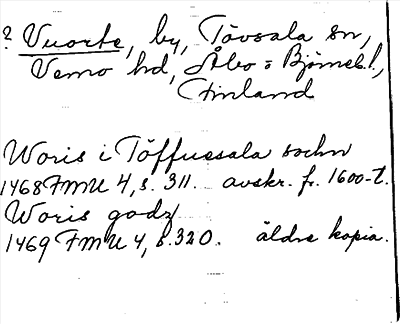 ? Vuorte, by, Tövsala sn,
Vemo hd, Åbo = Björneb.l.,
Finland
Woris i Töffuesala sochn
1468 FMU 4, s. 311. avskr. fr. 1600-t.
Woris godz
1469 FMU 4, s. 320. äldre kopia.